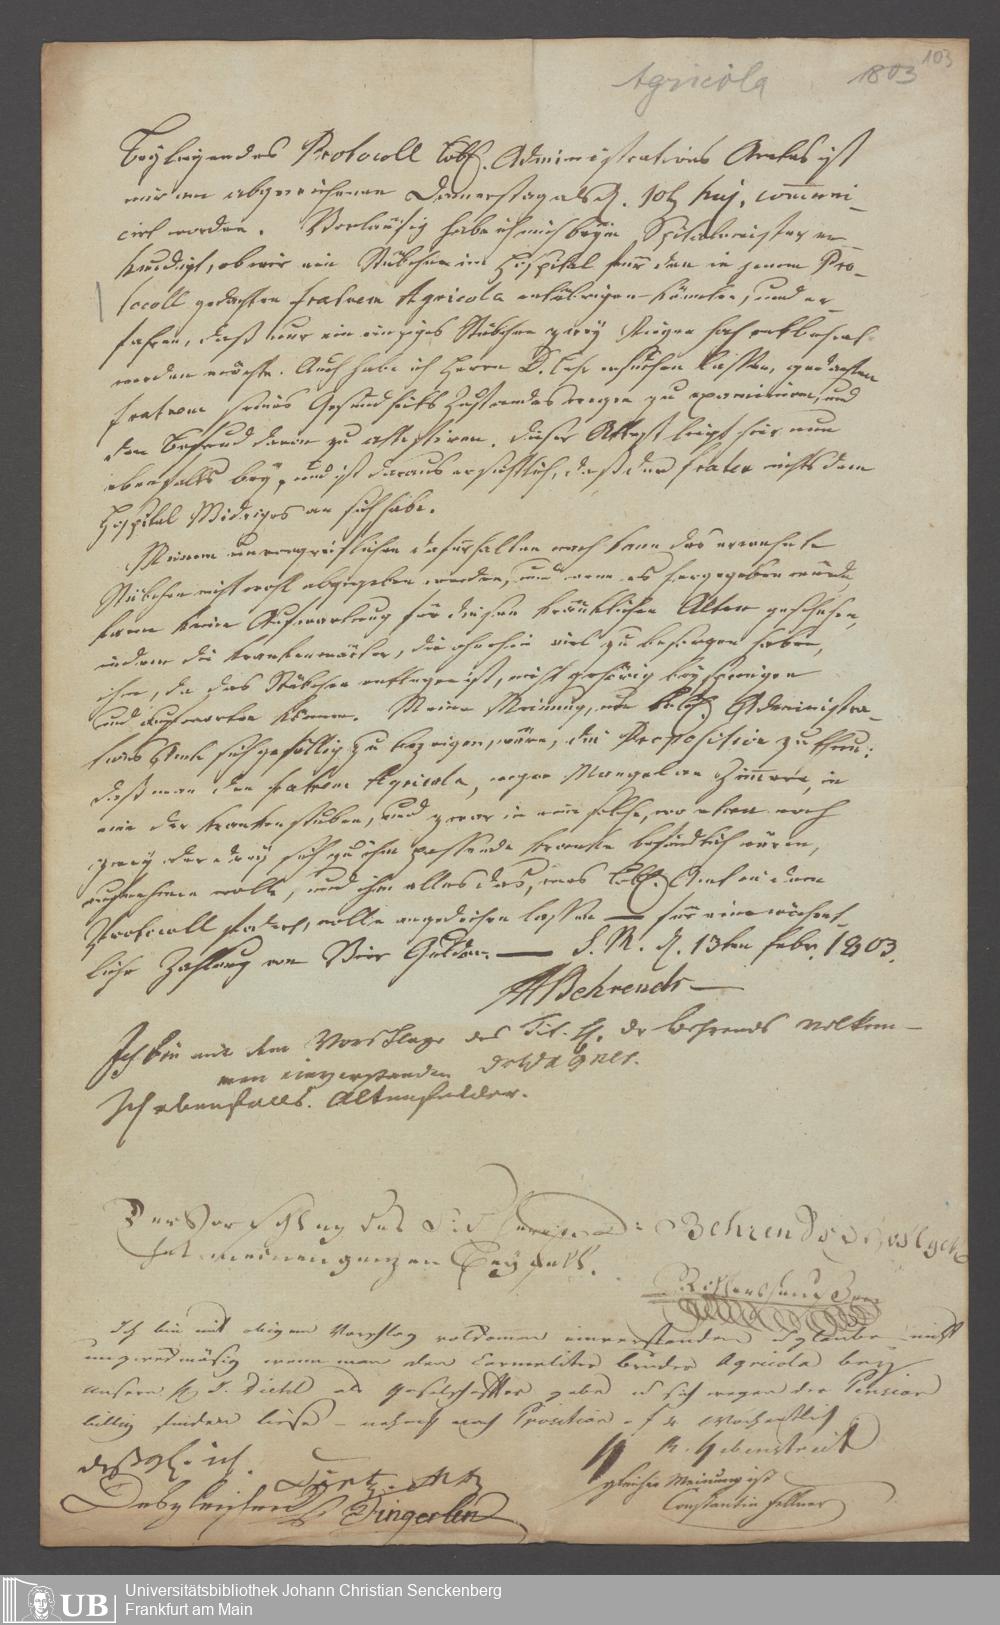 103
Agricola 1803
Beyliegendes Protocoll löbl. Administrations Amtes ist
mir am abgewichenen Donnerstag als d. 10t huj. communi-
cirt worden. Vorläufig habe ich mich beym Spitalmeister er-
kundigt, ob wir ein Stübchen im Hospital für den in jenem Pro-
tocoll gedachten fratrem Agricola entübrigen könnten, und er-
fahren, daß nur ein einziges Stübchen zwey Stiegen hoch
werden möchte. Auch habe ich Herrn D. Lehr ersuchen lassen, gedachten
fratrem seines Gesundheits Zustandes wegen zu examiniren, und
den Befund davon zu attestiren. Dieser Attest liegt hier nun
ebenfalls bey, und ist daraus ersichtlich, daß der frater nichts dem
Hospital Widriges an sich habe.
Meinem unvorgreiflichen dafürhalten nach kann das erwehnte
Stübchen nicht wohl abgegeben werden, und wenn es hergegeben würde,
kann keine Aufwartung für diesen kränklichen Alten geschehen,
indem die Krankenwärter, die ohnehin viel zu besorgen haben,
ihm, da das Stübchen entlegen ist, nicht gehörig beyspringen
und aufwarten können. Meine Meinung, um löbl. Administra-
tions Amte sich gefällig zu bezeigen, wäre, die Proposition zu thun:
daß man den fratrem Agricola, wegen Mangel an Zimmern, in
eine der Krankenstuben, und zwar in eine solche, wo etwa noch
zwey oder drey sich zu ihm passende Kranke befindlich wären,
aufnehmen wolle, und ihm alles das, was löbl. Amt in dem
Protocoll fodert, wolle angedeihen lassen — für eine wöchent-
liche Zahlung von Vier Gulden. — S. M. d. 13ten febr. 1803.
Behrends
Ich bin mit dem Vorschlage des Tit. H. Dr Behrends vollkom-
men einverstanden
Ich ebenfalls. Altenfelder.
Der Vorschlag des Behrends
hat meinen ganzen Beyfall.
Ich bin mit obigem Vorschlag vollkomen einverstanden u glaube nicht
unzweckmäsig wenn man den Carmeliter bruder Agricola bey
unsern H. D. Diehl als gesellschafter gebe u sich wegen der Pension
billig finden liese - nehml. nach Proposition f 4 wöchentlich
deßgl. ich.
gleicher Meinung ist
Constantin Fellner
Desgleichen Fingerlin
Universitätsbibliothek Johann Christian Senckenberg
Frankfurt am Main
UB